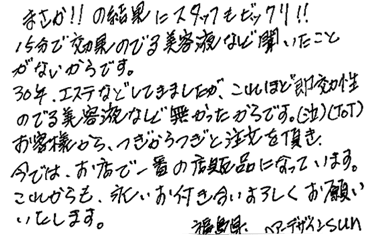 まさか!!の結果にスタッフもビックリ!!
15分で効果のでる美容液など聞いたこと
がないからです。
30年、エステなどしてきましたが、これほど即効性
のでる美容液など無かったからです。(泣)(ToT)
お客様から、つぎからつぎと注文を頂き、
今では、お店で一番の店販品になっています。
これからも、永いお付き合いよろしくお願い
いたします。
福島県 ヘアーデザインsun